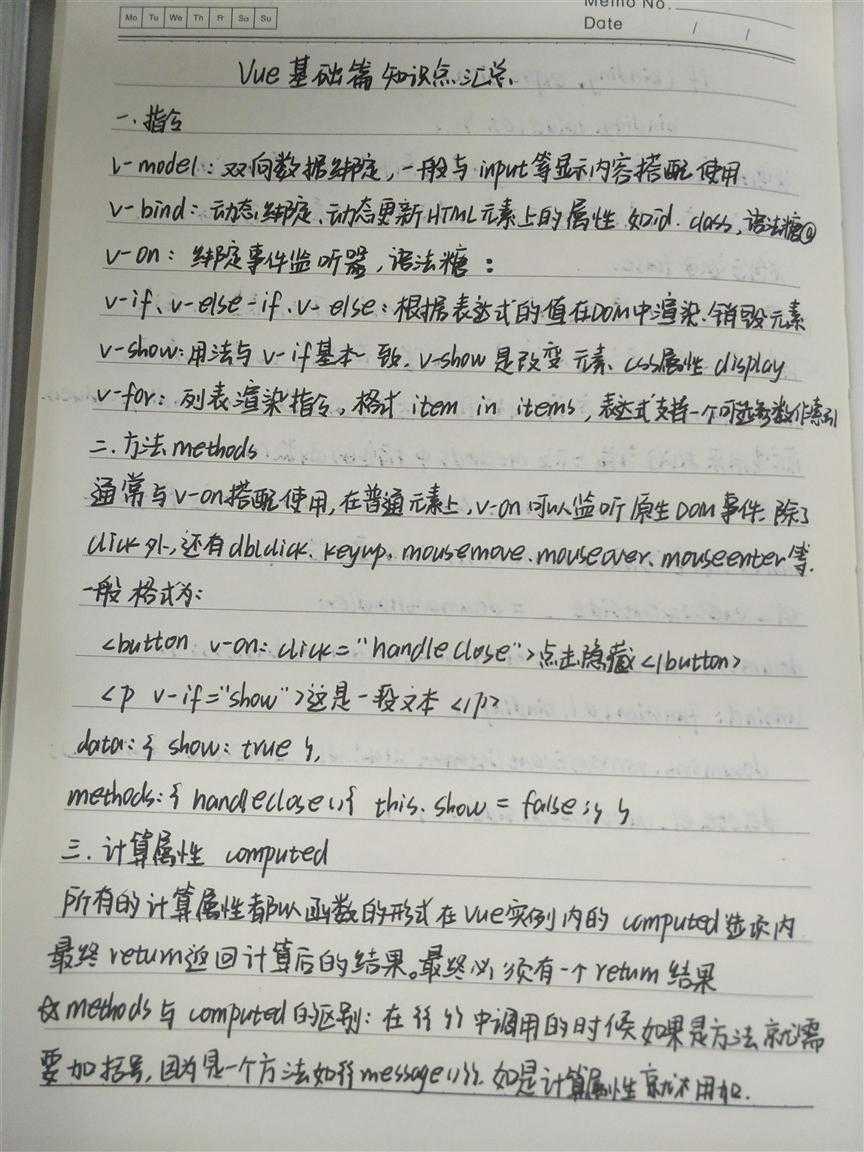 Mo Tu We Th Fr Sa Su
Memo No.
Date / /
Vue基础篇知识点汇总.
一.指令
v-model:双向数据绑定,一般与input等显示内容搭配使用
v-bind:动态绑定、动态更新HTML元素上的属性.如id.class,语法糖@
v-on:绑定事件监听器,语法糖:
v-if、v-else-if、v-else:根据表达式的值在DOM中渲染.销毁元素
v-show:用法与v-if基本一致.v-show是改变元素、css属性display
v-for:列表渲染指令,格式item in items,表达式支持一个可选参数作索引
二.方法methods
通常与v-on搭配使用,在普通元素上,v-on可以监听原生DOM事件.除了
click外,还有dblclick、keyup、mousemove、mouseover、mouseenter等.
一般格式为:
<button v-on:click="handleclose">点击隐藏</button>
<p v-if="show">这是一段文本</p>
data:{ show:true },
methods:{ handleclose(){ this.show = false;} }
三.计算属性 computed
所有的计算属性都以函数的形式在Vue实例内的computed选项内
最终return返回计算后的结果。最终必须有一个return结果
☆methods与computed的区别:在{{ }}中调用的时候如果是方法就需
要加括号,因为是一个方法如{{message()}}.如是计算属性就不用加.